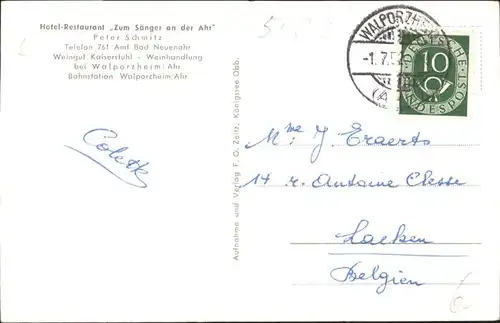 Hotel-Restaurant „Zum Sänger an der Ahr"
Peter Schmitz
Telefon 761 Amt Bad Neuenahr
Weingut Kaiserstuhl - Weinhandlung
bei Walporzheim/Ahr
Bahnstation Walporzheim/Ahr
Colette
Aufnahme und Verlag F. G. Zeitz, Königssee Obb.
WALPORZH
-1.7.5
(A
DEUTSCHE
10
BUNDESPOST
Mme J. Eraerts
14 r. Antoine Clesse
Laeken
Belgien
6-